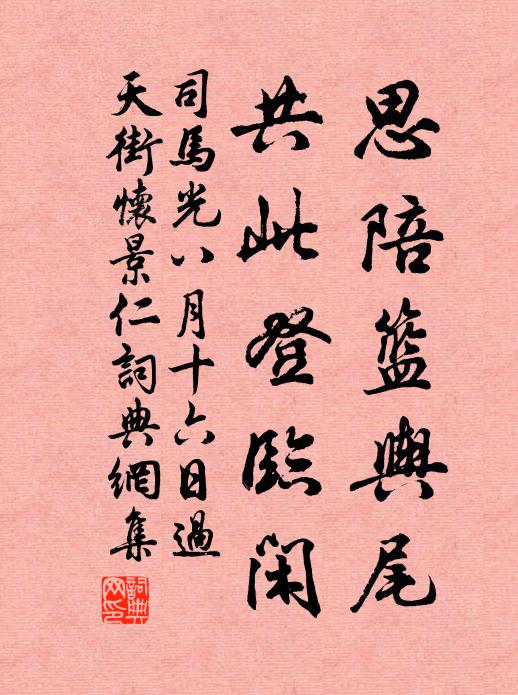 思陪籃輿尾
共此登臨閑
司馬光八月十六日過
天街懷景仁詞典網集
詞典
网印